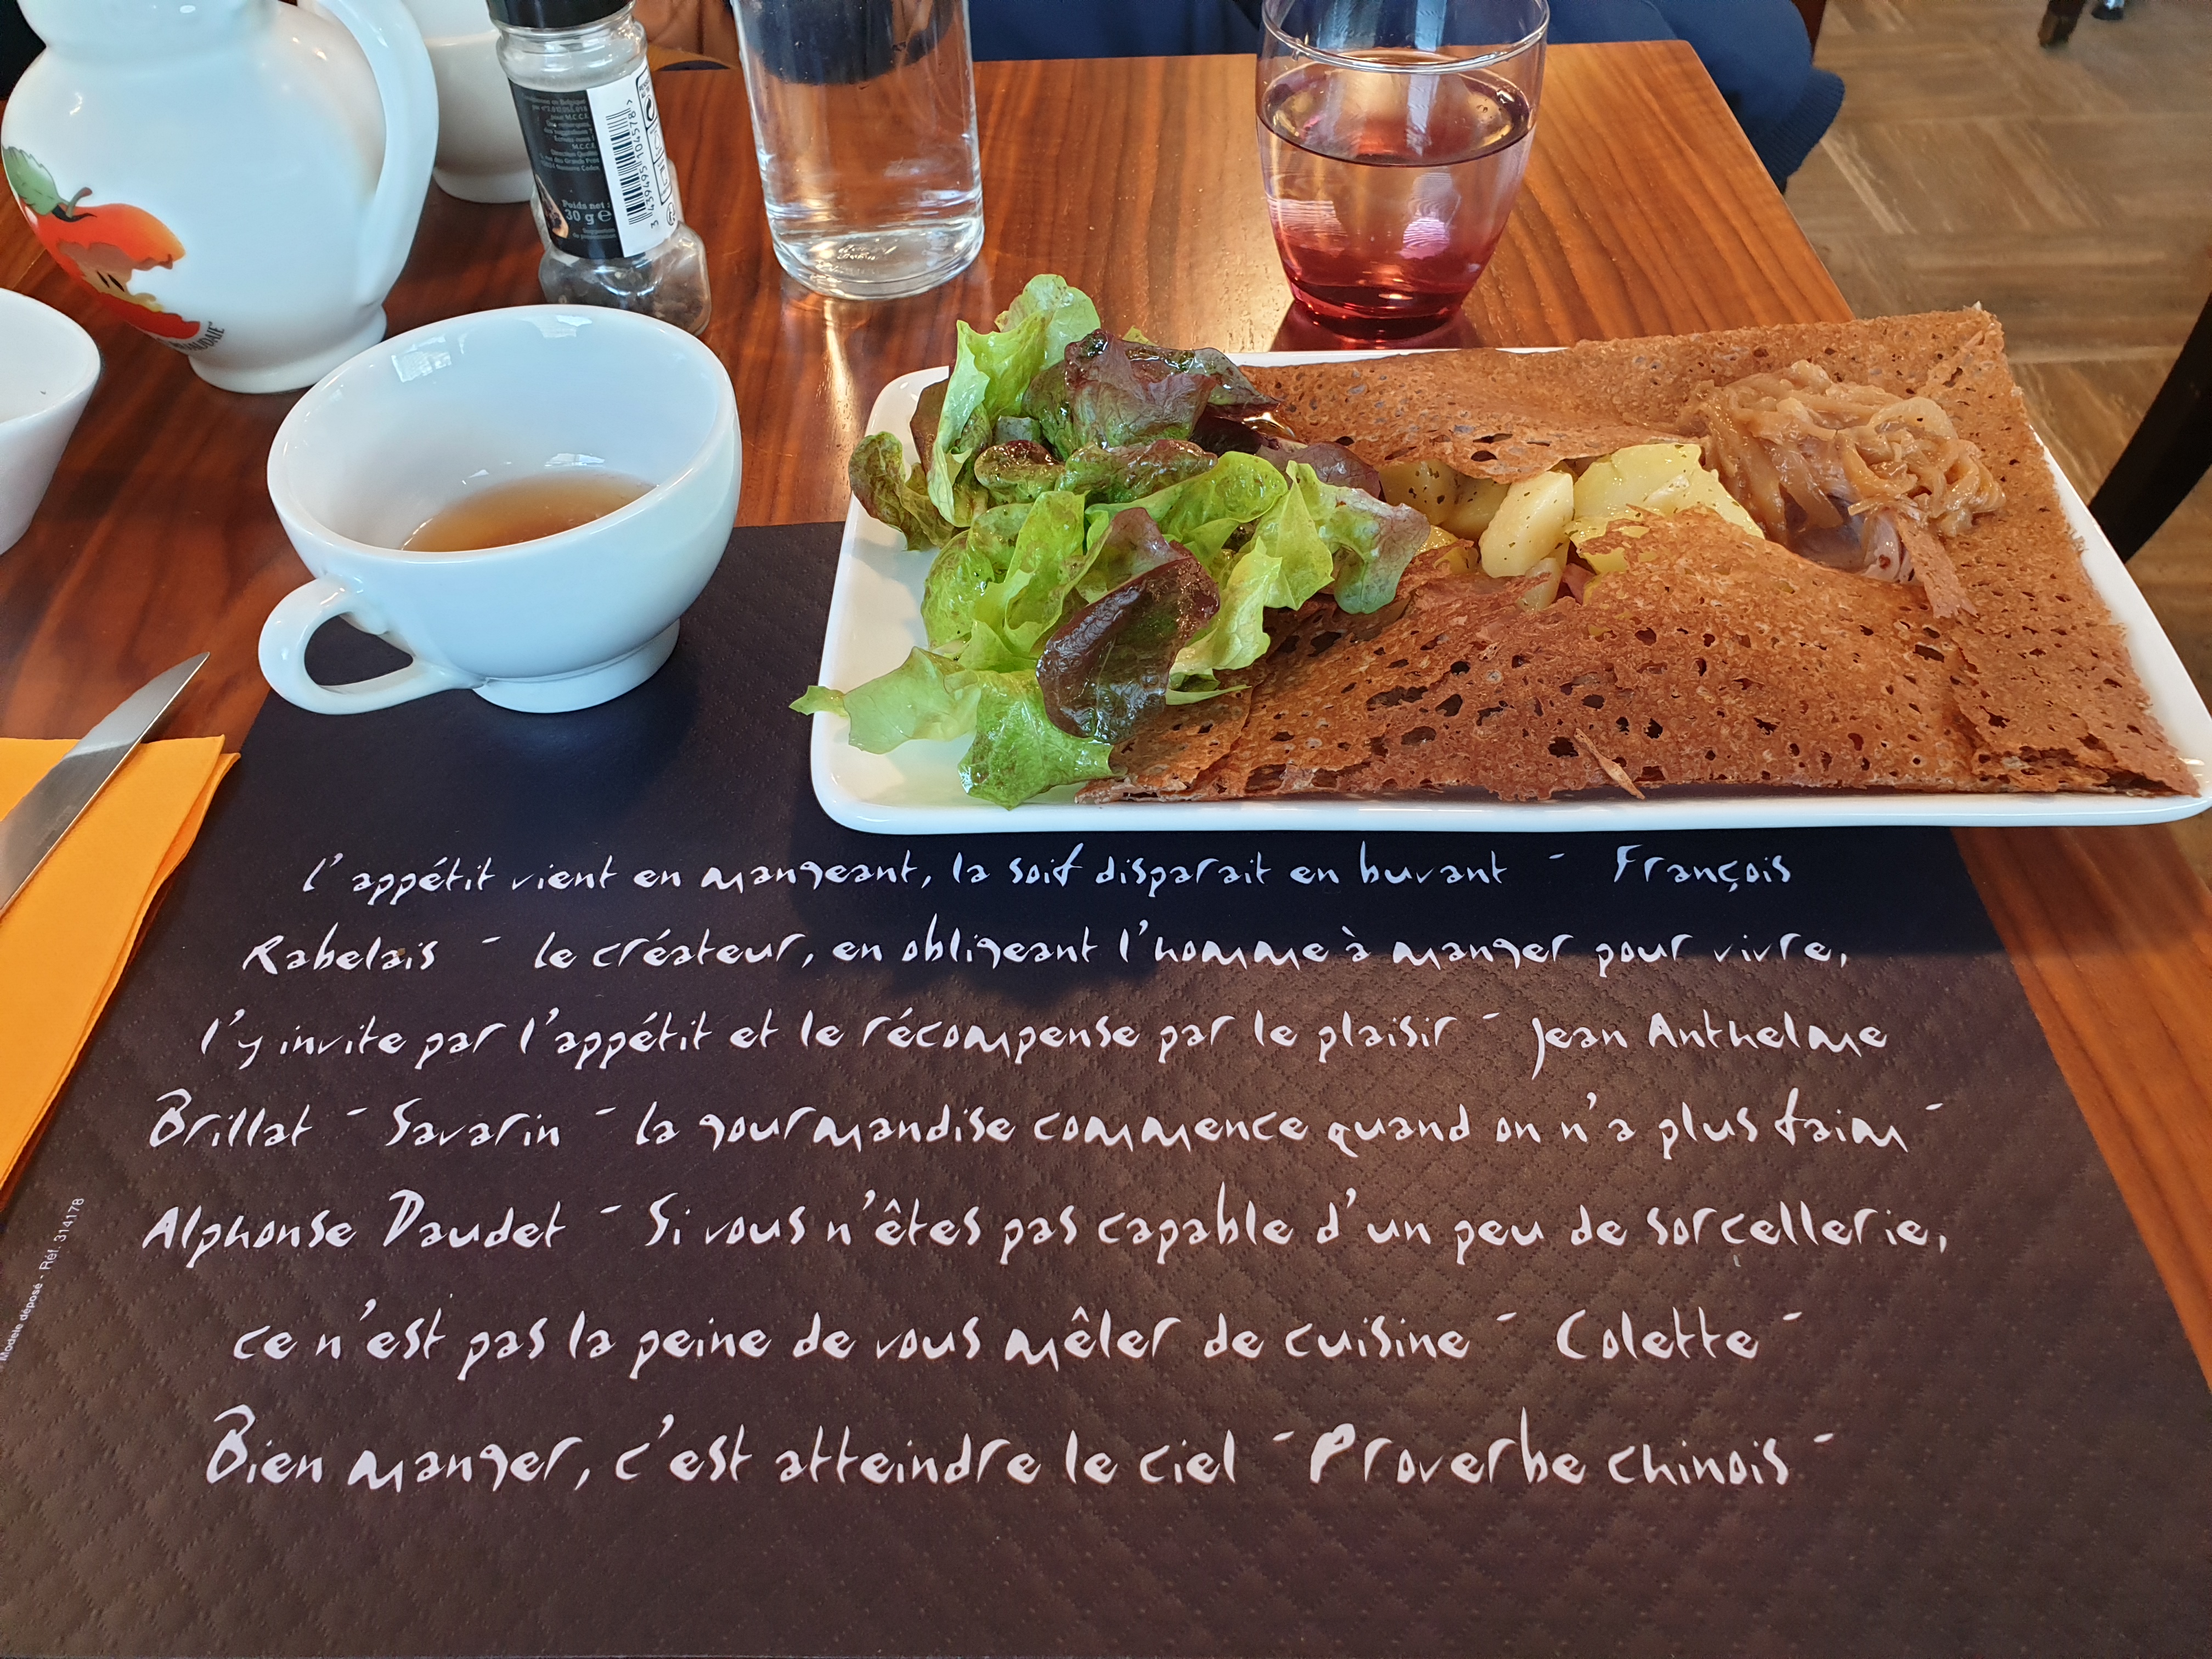 Poids net :
30 g e
3 439495 104578 >
l'appétit vient en mangeant, la soif disparait en buvant - François
Rabelais - le créateur, en obligeant l'homme à manger pour vivre,
l'y invite par l'appétit et le récompense par le plaisir - Jean Anthelme
Brillat - Savarin - la gourmandise commence quand on n'a plus faim -
Alphonse Daudet - Si vous n'êtes pas capable d'un peu de sorcellerie,
ce n'est pas la peine de vous mêler de cuisine - Colette -
Bien manger, c'est atteindre le ciel - Proverbe chinois -
Modèle déposé - Réf. 314178